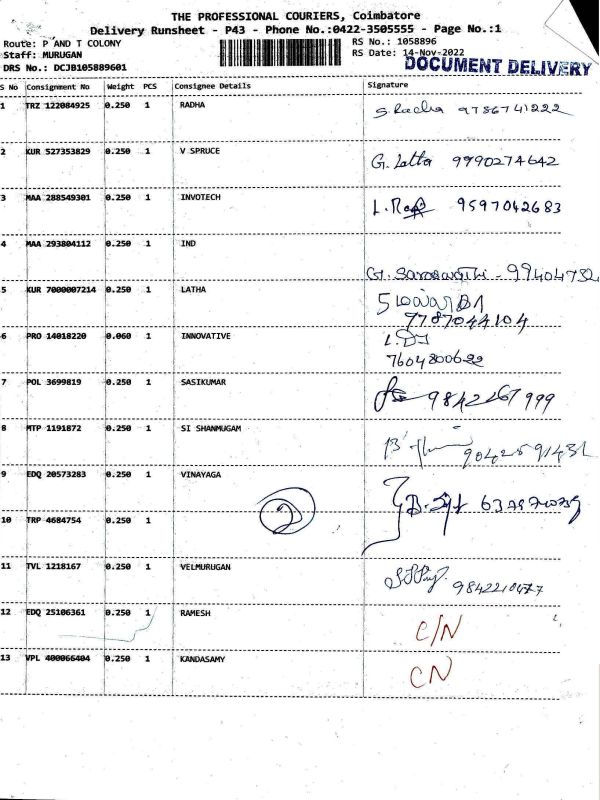 THE PROFESSIONAL COURIERS, Coimbatore
Delivery Runsheet - P43 - Phone No.:0422-3505555 - Page No.:1
Route: P AND T COLONY RS No.: 1058896
Staff: MURUGAN RS Date: 14-Nov-2022
DRS No.: DCJB105889601 DOCUMENT DELIVERY
S No Consignment No Weight PCS Consignee Details Signature
1 TRZ 122084925 0.250 1 RADHA S. Radha 9786741222
2 KUR 527353829 0.250 1 V SPRUCE G. Latta 9990274642
3 MAA 288549301 0.250 1 INVOTECH 9597042683
4 MAA 293804112 0.250 1 IND
G. Saraswathi -
5 KUR 7000007214 0.250 1 LATHA
7787044104
6 PRO 14018220 0.060 1 INNOVATIVE
7604800622
7 POL 3699819 0.250 1 SASIKUMAR 9842267999
8 MTP 1191872 0.250 1 SI SHANMUGAM
9 EDQ 20573283 0.250 1 VINAYAGA
2
10 TRP 4684754 0.250 1
11 TVL 1218167 0.250 1 VELMURUGAN 9842210477
12 EDQ 25106361 0.250 1 RAMESH C/N
13 VPL 400066404 0.250 1 KANDASAMY CN